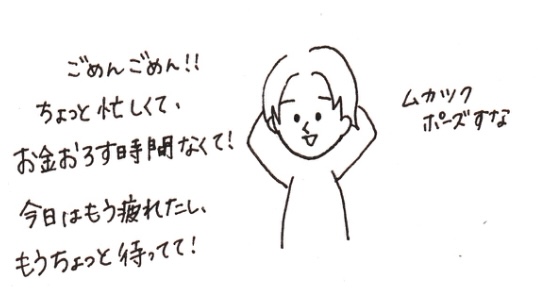 ごめんごめん!!
ちょっと忙しくて、
お金おろす時間なくて!
今日はもう疲れたし、
もうちょっと待ってて!
ムカつく
ポーズすな